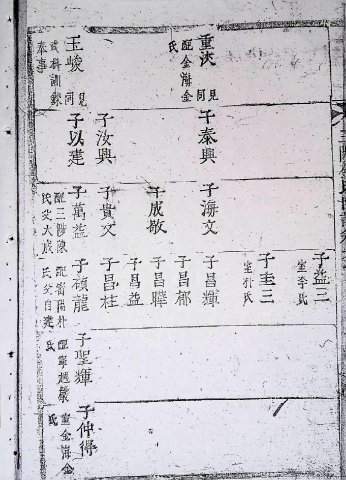 子益三
室李氏
子圭三
室朴氏
重洪
見同
配金海金
氏
子泰興
子海文
子昌輝
子昌郁
子成敬
子昌曄
子汝興
子貴文
子昌益
子昌柱
玉峻
見同
武科訓鍊
奉事
子以建
子萬益
配三陟陳
氏父大成
子禎龍
配密陽朴
氏父自建
子聖輝
氏
子仲得
室金海金
氏